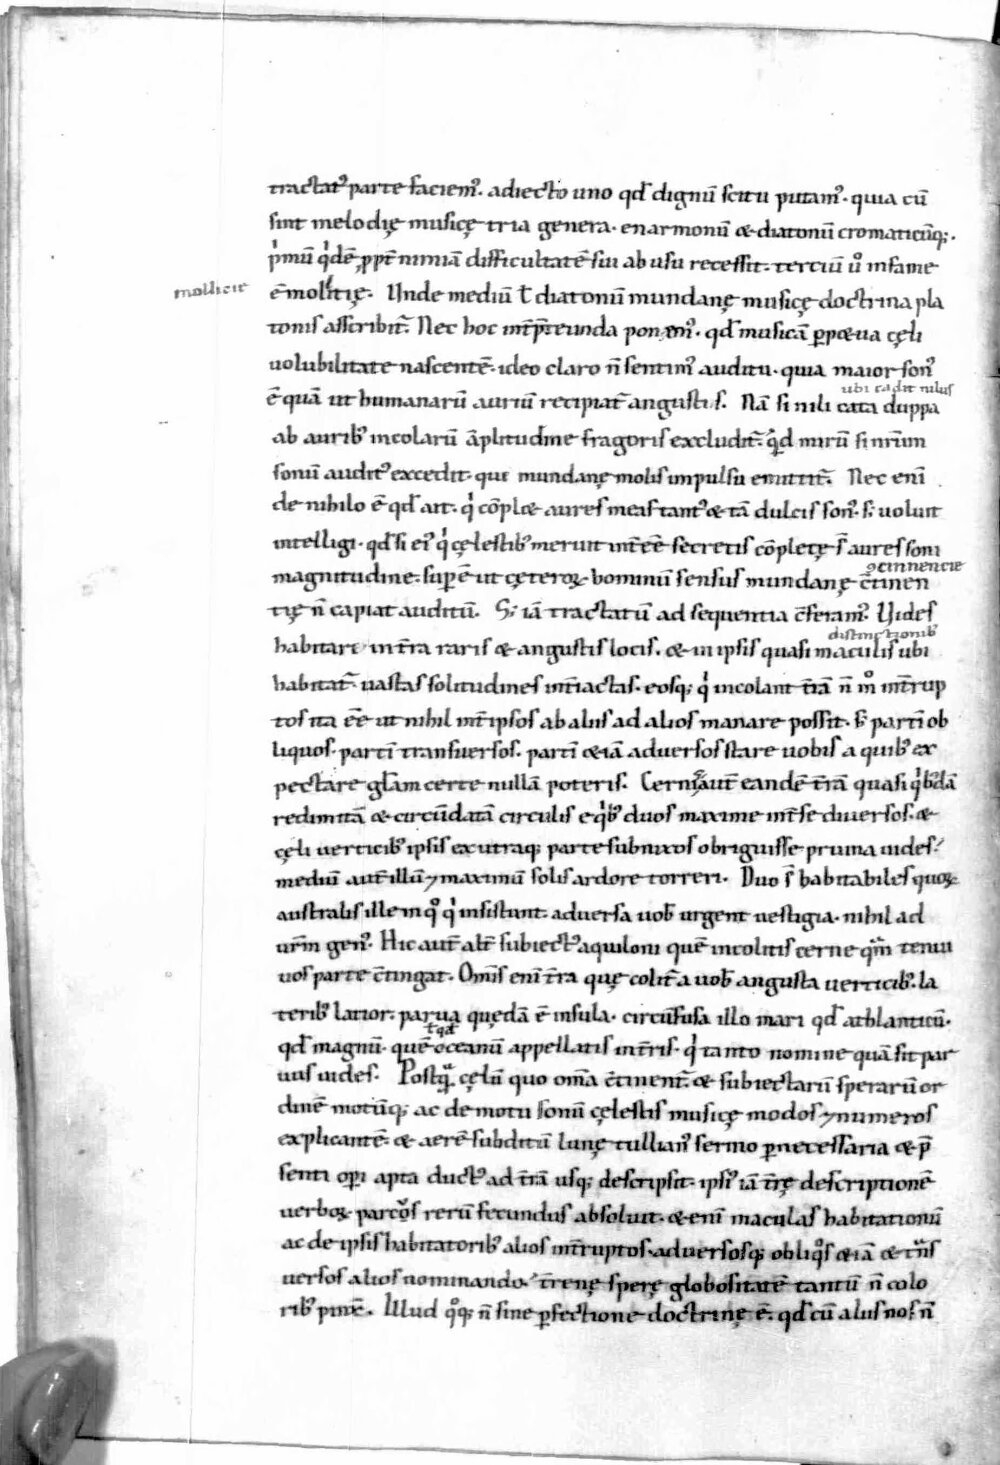 tractat᷒ parte faciem᷒. adiecto uno qđ dignū scitu putam᷒. quia cū
sint melodię musicę tria genera. enarmonū & diatonū cromaticūq;.
pⁱmū qⁱdē ꝓpt̄ nimiā difficultatē sui ab usu recessit. terciū ů infame
mollicie
ē molⁱtię. Unde mediū ł diatonū mundanę musicę doctrina pla
tonis asscribit̄. Nec hoc int̄ p̄tereunda ponem᷒. qđ musicā ꝑp&ua cęli
uolubilitate nascentē. ideo claro n̄ sentim᷒ auditu. quia maior son᷒
ē quā ut humanarū auriū recipiat̄ angustiis. Nā si nili cata duppa
ubi cadit nilus
ab aurib᷒ incolarū āplitudine fragoris excludit̄. qⁱd mirū si nr̄um
sonū audit᷒ excedit. que mundanę molis impulsu emittit̄. Nec eni
de nihilo ē qđ ait. qⁱ cōpl& aures meas tant᷒ & tā dulcis son᷒. s; uoluit
intelligi. qđ si ei᷒ qⁱ cęlestib᷒ meruit int̄ēē secretis cōpletę s̄ aures soni
magnitudine. suꝑē ut cęteroꝝ hominū sensus mundanę c̄tinen
ꝯcinnencie
tię n̄ capiat auditū. S; iā tractatū ad sequentia c̄feram᷒. Uides
habitari in t̄ra raris & angustis locis. & in ipsis quasi maculis ubi
distinctionib᷒
habitat̄. uastas solitudines int̄iactas. eosq; qⁱ incolunt t̄rā n̄ m° int̄rup
tos ita ēē ut nihil int̄ ipsos ab aliis ad alios manare possit. s; partī ob
liquos. partī transuersos. partī &iā aduersos stare uobis a quib᷒ ex
pectare gl̄am certe nullā poteris. Cernⁱs aut̄ eandē t̄rā quasi qⁱb᷒dā
redimitā & circūdatā circulis e qⁱb᷒ duos maxime int̄ se diuersos. &
cęli uerticib᷒ ipsis ex utraq; parte subnixos obriguisse pruina uides.
mediū aut̄ illū ⁊ maximū solis ardore torreri. Duo s̄ habitabiles quoꝝ
australis ille in q° qⁱ insistunt. aduersa uob᷒ urgent uestigia. nihil ad
ur̄m gen᷒. Hic aut̄ alt̄ subiect᷒ aquiloni quē incolitis cerne qᵃm tenui
uos parte c̄tingat. Omīs eni t̄ra quę colit̄ a uob᷒ angusta uerticib᷒. la
terib᷒ latior. parua quędā ē insula. circūfusa illo mari qđ athlanticū.
ł qđ
qđ magnū. quē oceanū appellatis in t̄ris. qⁱ tanto nomine quā sit par
uus uides. Postqᵃ cęlū quo om̄a c̄tinent̄. & subiectarū sperarū or
dinē motūq; ac de motu sonū cęlestis musicę modos ⁊ numeros
explicantē. & aerē subditū lunę tullian᷒ sermo ꝑ necessaria & p̄
senti oꝑi apta duct᷒ ad t̄rā usq; descripsit. ips᷒ iā t̄rę descriptionē
uerboꝝ parc᷒ os rerū fecundus absoluit. & eni maculas habitationū
ac de ipsis habitatorib᷒ alios int̄ruptos aduersosq; obliqᵒs &iā & tᵃns
uersos alios nominando. t̄renę sperę globositatē tantū n̄ colo
rib᷒ pinx̄. Illud q°q; n̄ sine ꝑfectione doctrinę ē. qđ cū aliis nos n̄